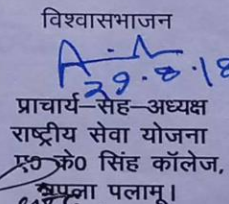 विश्वासभाजन
29.8.18
प्राचार्य–सह–अध्यक्ष
राष्ट्रीय सेवा योजना
ए० के० सिंह कॉलेज,
जपला पलामू।